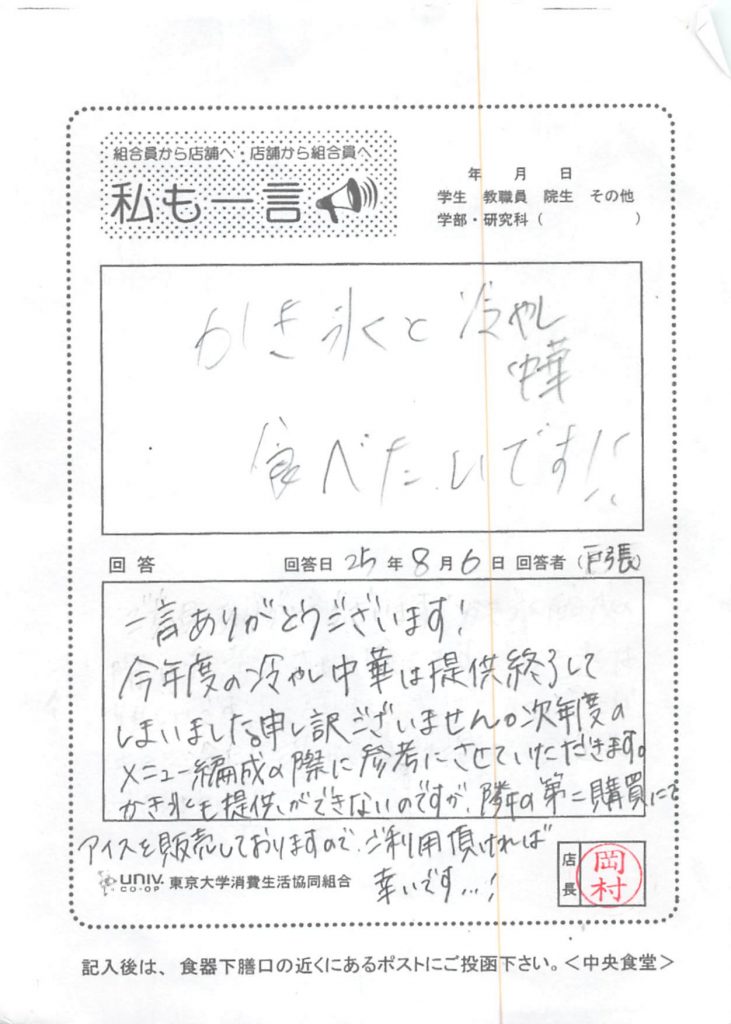 組合員から店舗へ・店舗から組合員へ
私も一言
年 月 日
学生 教職員 院生 その他
学部・研究科（ ）
かき氷と冷やし
中華
食べたいです!!
回答 回答日 25年8月6日 回答者（戸張）
一言ありがとうございます!
今年度の冷やし中華は提供終了して
しまいました。申し訳ございません。次年度の
メニュー編成の際に参考にさせていただきます。
かき氷も提供ができないのですが、隣の第二購買にて
アイスを販売しておりますので、ご利用頂ければ
幸いです...!
UNIV.
CO-OP
東京大学消費生活協同組合
店長
岡村
記入後は、食器下膳口の近くにあるポストにご投函下さい。＜中央食堂＞